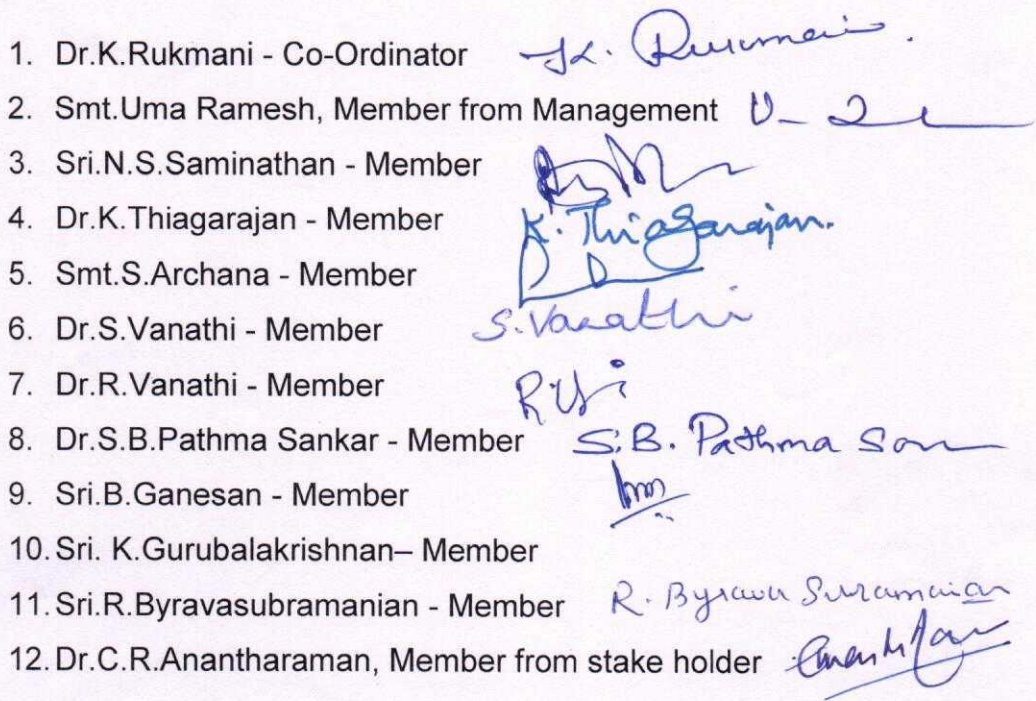 1. Dr.K.Rukmani - Co-Ordinator K. Rukmani.
2. Smt.Uma Ramesh, Member from Management
3. Sri.N.S.Saminathan - Member
4. Dr.K.Thiagarajan - Member K. Thiagarajan.
5. Smt.S.Archana - Member
6. Dr.S.Vanathi - Member S.Vanathi
7. Dr.R.Vanathi - Member
8. Dr.S.B.Pathma Sankar - Member S.B. Pathma San
9. Sri.B.Ganesan - Member
10. Sri. K.Gurubalakrishnan– Member
11. Sri.R.Byravasubramanian - Member R. Byrava
12. Dr.C.R.Anantharaman, Member from stake holder